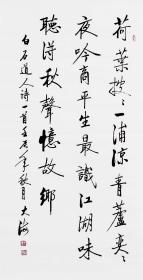 荷葉披〻一浦涼青蘆奕〻
夜吟商平生最識江湖味
聽得秋聲憶故鄉
白石道人诗一首壬辰年秋月大海